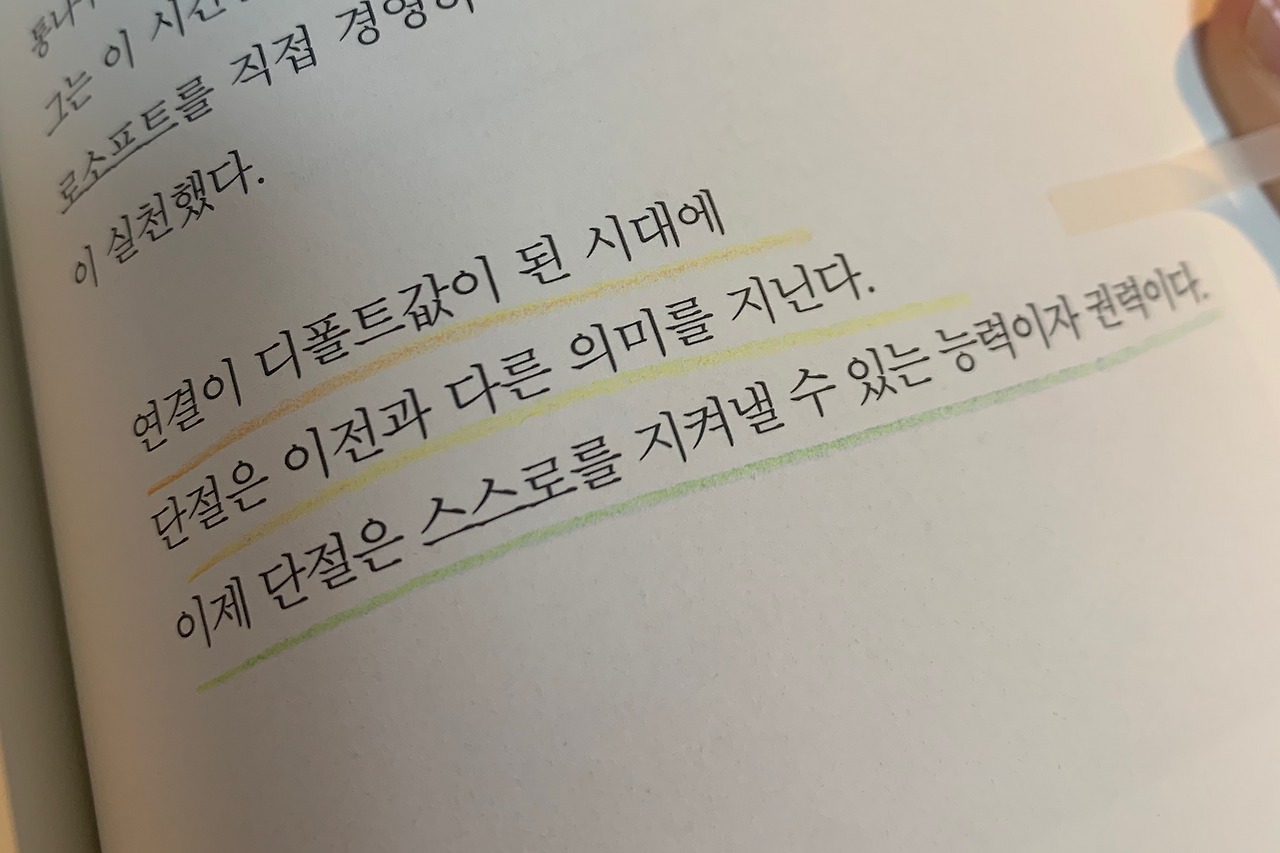 그는 이
로소프트를 직접
이 실천했다.
연결이 디폴트값이 된 시대에
단절은 이전과 다른 의미를 지닌다.
이제 단절은 스스로를 지켜낼 수 있는 능력이자 권력이다.